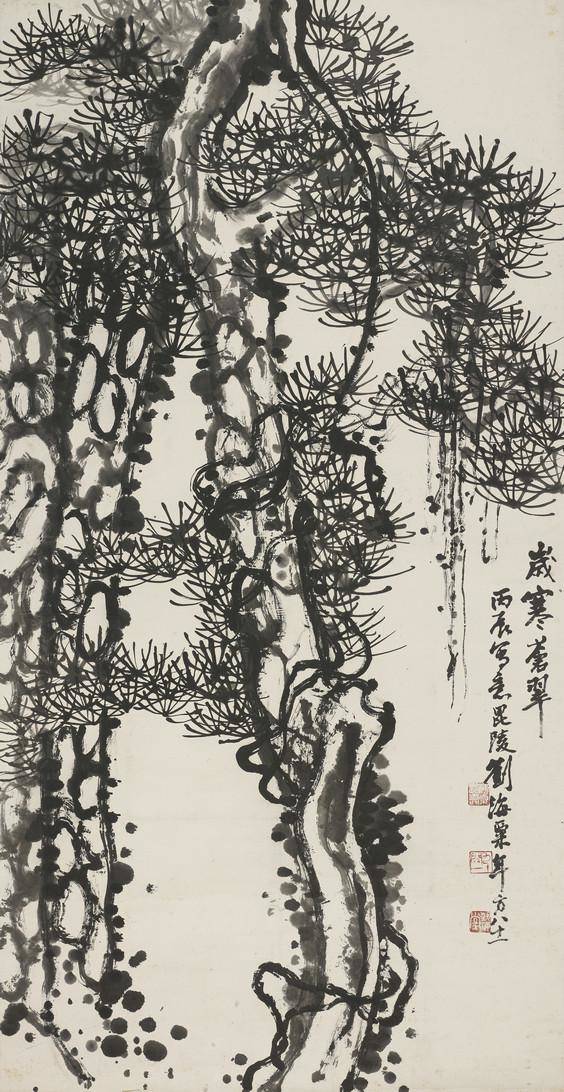 歲寒蒼翠
丙辰寫意毘陵劉海粟年方八十一